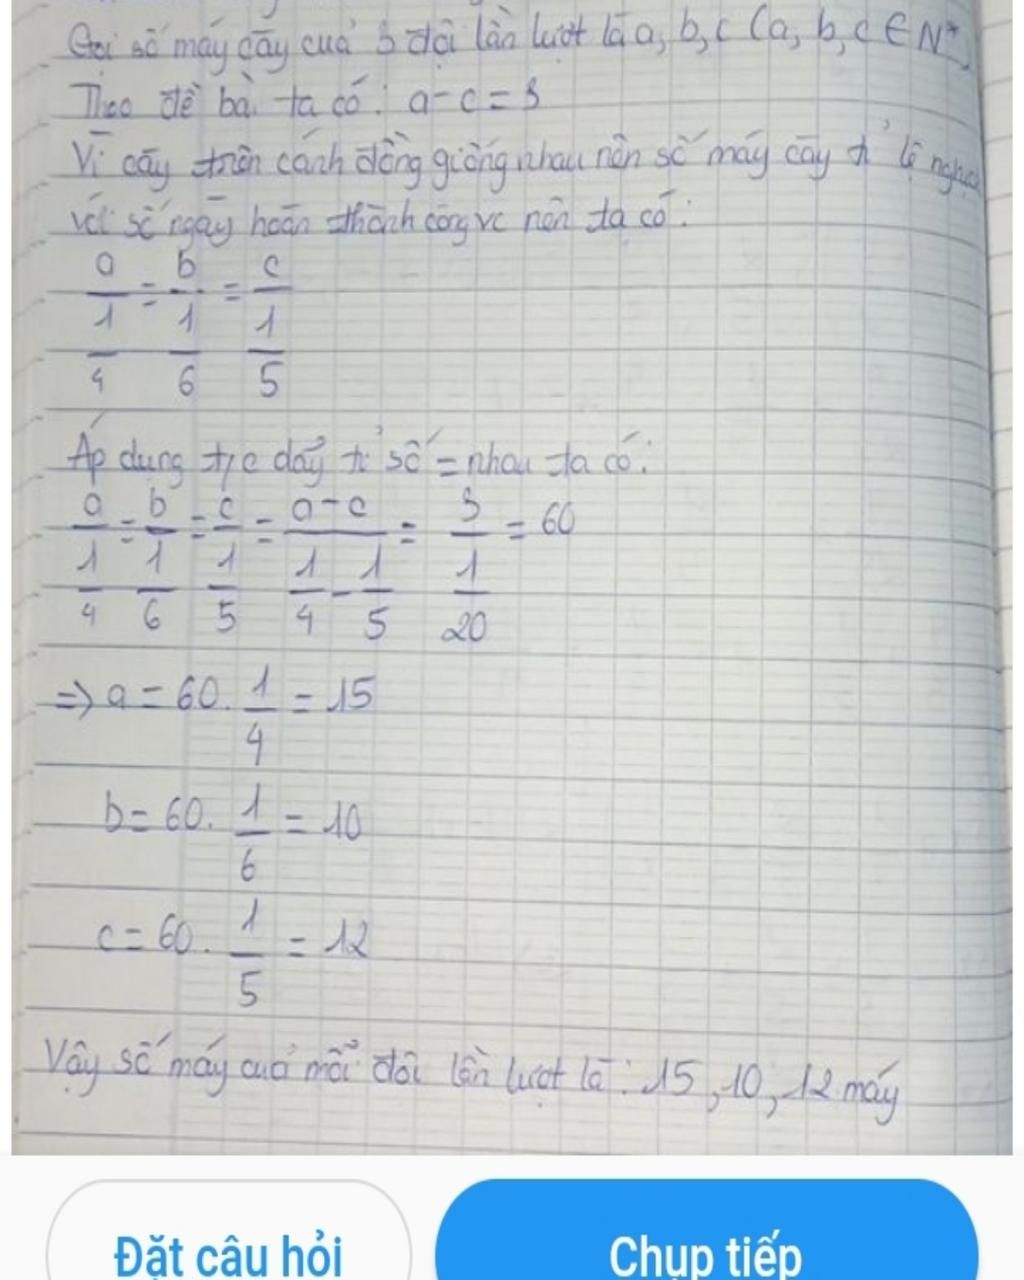 Gọi số máy cày của 3 đội lần lượt là a, b, c (a, b, c ∈ N*)
Theo đề bài ta có: a - c = 3
Vì cày trên cánh đồng giống nhau nên số máy cày tỉ lệ nghịch
với số ngày hoàn thành công vc nên ta có:
a/(1/4) = b/(1/6) = c/(1/5)
Áp dụng t/c dãy tỉ số = nhau ta có:
a/(1/4) = b/(1/6) = c/(1/5) = (a-c)/(1/4 - 1/5) = 3/(1/20) = 60
=> a = 60 . 1/4 = 15
b = 60 . 1/6 = 10
c = 60 . 1/5 = 12
Vậy số máy của mỗi đội lần lượt là: 15, 10, 12 máy
Đặt câu hỏi
Chụp tiếp